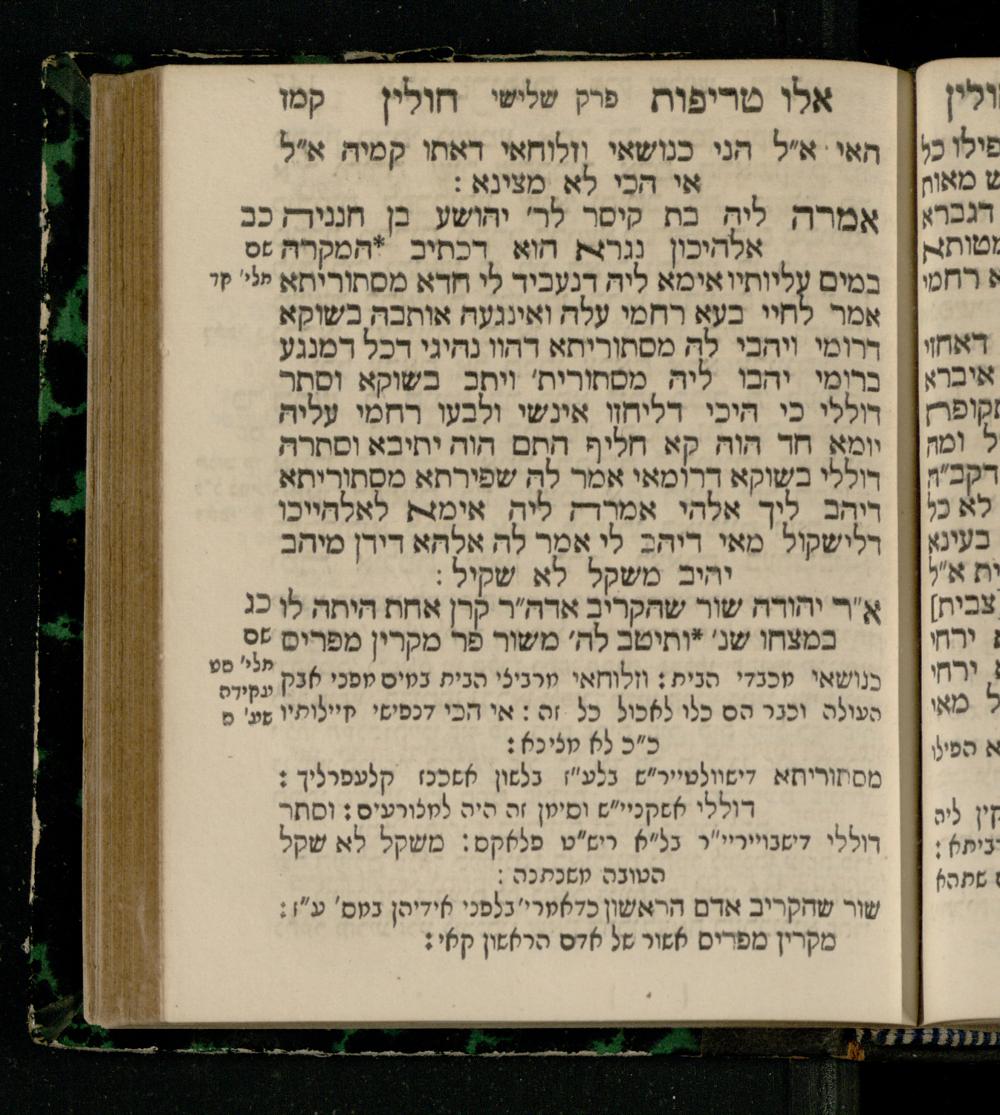 אלו טריפות פרק שלישי חולין קמז
האי א״ל הני כנושאי וזלוחאי דאתו קמיה א״ל
אי הכי לא מצינא :
אמרה ליה בת קיסר לר׳ יהושע בן חנניה כב
אלהיכון נגרא הוא דכתיב *המקרה שם
במים עליותיו אימא ליה דנעביד לי חדא מסתוריתא תלי׳ קד
אמר לחיי בעא רחמי עלה ואינגעה אותבה בשוקא
דרומי ויהבי לה מסתוריתא דהוו נהיגי דכל דמנגע
ברומי יהבו ליה מסתורית׳ ויתב בשוקא וסתר
דוללי כי היכי דליחזו אינשי ולבעו רחמי עליה
יומא חד הוה קא חליף התם הוה יתיבא וסתרה
דוללי בשוקא דרומאי אמר לה שפירתא מסתוריתא
דיהב ליך אלהי אמרה ליה אימא לאלהייכו
דלישקול מאי דיהב לי אמר לה אלהא דידן מיהב
יהיב משקל לא שקיל :
א״ר יהודה שור שהקריב אדה״ר קרן אחת היתה לו כג
במצחו שנ׳ *ותיטב לה׳ משור פר מקרין מפרים שם
כנושאי מכבדי הבית : וזלוחאי מרביצי הבית במים מפני אבק תלי׳ סט
העולה וכבר הם כלו לאכול כל זה : אי הכי דנפישי חיילותיו עקידה
שע׳ ס
כ״כ לא מצינא :
מסתוריתא דישוולטייר״ש בלע״ז בלשון אשכנז קלעפרליך :
דוללי אשקניי״ש וסימן זה היה למצורעים : וסתר
דוללי דישבוייריי״ר בל״א ריש״ט פלאקס : משקל לא שקל
הטובה משנתנה :
שור שהקריב אדם הראשון כדאמרי׳ בלפני אידיהן במס׳ ע״ז :
מקרין מפרים אשור של אדם הראשון קאי :
ולין
פילו כל
ש מאות
דגברא
מטותא
א רחמי
דאחזי
איברא
תקופת
ל ומה
דקב״ה
לא כל
בעינא
ית א״ל
צבית]
א ירחי
א ירחי
ל מאי
א הפילו
קין ליה
רביתא :
ם שתהא